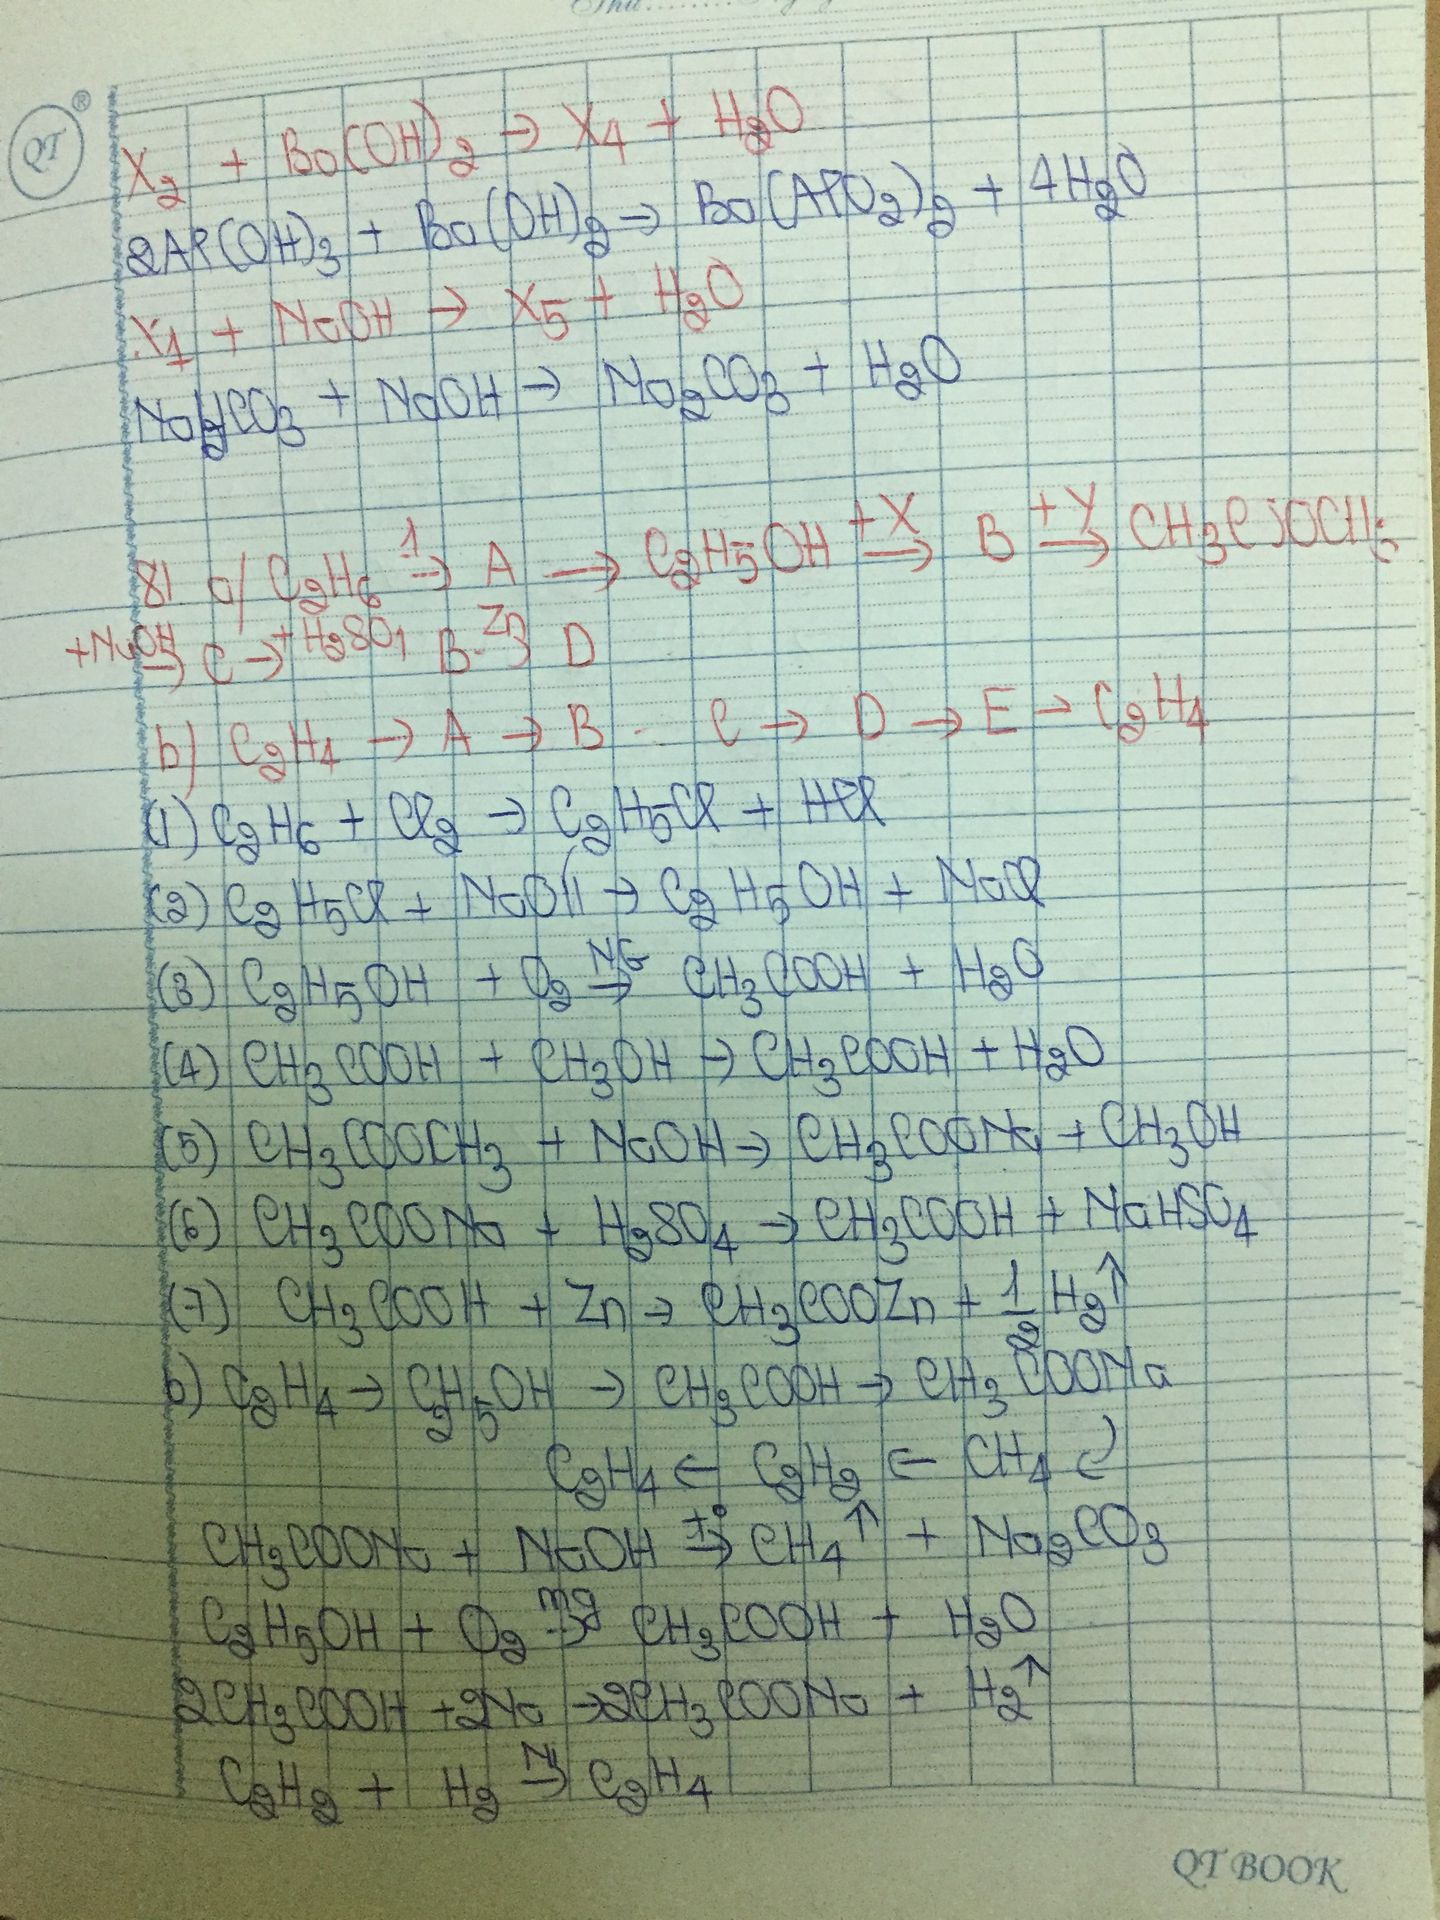 QT ®
X₂ + Ba(OH)₂ → X₄ + H₂O
2Al(OH)₃ + Ba(OH)₂ → Ba(AlO₂)₂ + 4H₂O
X₁ + NaOH → X₅ + H₂O
NaHCO₃ + NaOH → Na₂CO₃ + H₂O
8/ a/ C₂H₆ →¹ A → C₂H₅OH +X→ B +Y→ CH₃COOCH₃
+NaOH→ C → +H₂SO₄ B Zn→ D
b) C₂H₄ → A → B - C → D → E → C₂H₄
(1) C₂H₆ + Cl₂ → C₂H₅Cl + HCl
(2) C₂H₅Cl + NaOH → C₂H₅OH + NaCl
(3) C₂H₅OH + O₂ →MG CH₃COOH + H₂O
(4) CH₃COOH + CH₃OH → CH₃COOH + H₂O
(5) CH₃COOCH₃ + NaOH → CH₃COONa + CH₃OH
(6) CH₃COONa + H₂SO₄ → CH₃COOH + NaHSO₄
(7) CH₃COOH + Zn → CH₃COOZn + 1/2 H₂↑
b) C₂H₄ → C₂H₅OH → CH₃COOH → CH₃COONa
C₂H₄ ← C₂H₂ ← CH₄ ↲
CH₃COONa + NaOH →t° CH₄↑ + Na₂CO₃
C₂H₅OH + O₂ →mg CH₃COOH + H₂O
2CH₃COOH + 2Na → 2CH₃COONa + H₂↑
C₂H₂ + H₂ →Ni C₂H₄
QT BOOK